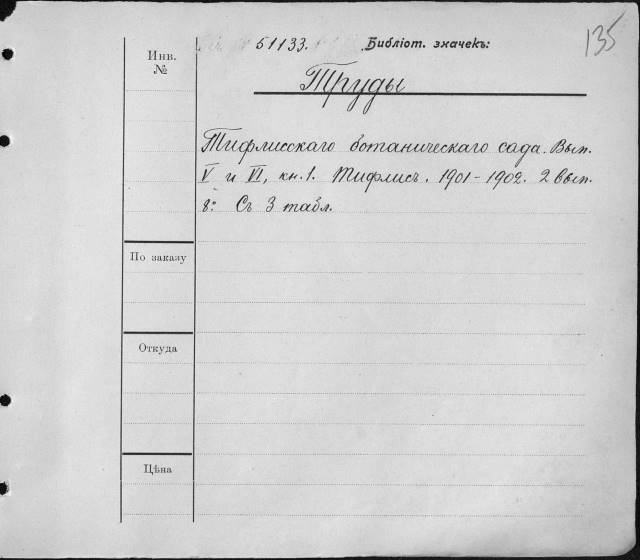 51133. Библіот. значекъ: 135
Инв.
№
Труды
Тифлисскаго ботаническаго сада. Вып.
V и VI, кн. 1. Тифлисъ. 1901-1902. 2 вып.
8º Съ 3 табл.
По заказу
Откуда
Цѣна